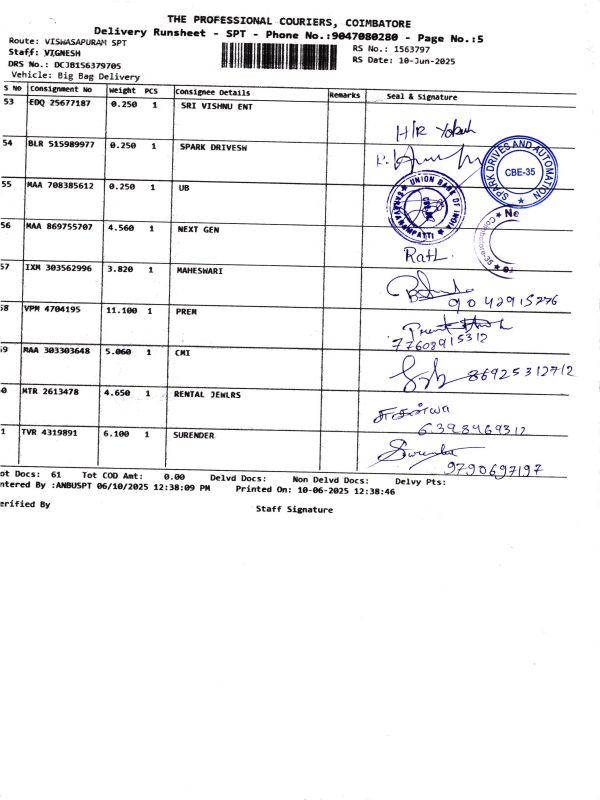 THE PROFESSIONAL COURIERS, COIMBATORE
Delivery Runsheet - SPT - Phone No.:9047080280 - Page No.:5
Route: VISWASAPURAM SPT
RS No.: 1563797
Staff: VIGNESH
RS Date: 10-Jun-2025
DRS No.: DCJB156379705
Vehicle: Big Bag Delivery
S No Consignment No Weight PCS Consignee Details Remarks Seal & Signature
53 EDQ 25677187 0.250 1 SRI VISHNU ENT
H/R
54 BLR 515989977 0.250 1 SPARK DRIVESW
SPARK DRIVES AND AUTOMATION
CBE-35
55 MAA 708385612 0.250 1 UB
UNION BANK OF INDIA
56 MAA 869755707 4.560 1 NEXT GEN
Ne
Coimbatore-35
57 IXM 303562996 3.820 1 MAHESWARI
9042915276
58 VPM 4704195 11.100 1 PREM
77608915312
59 MAA 303303648 5.060 1 CMI
86925312712
0 MTR 2613478 4.650 1 RENTAL JEWLRS
சுகன்யா
6398469312
1 TVR 4319891 6.100 1 SURENDER
Surender
9790697197
ot Docs: 61 Tot COD Amt: 0.00 Delvd Docs: Non Delvd Docs: Delvy Pts:
ntered By :ANBUSPT 06/10/2025 12:38:09 PM Printed On: 10-06-2025 12:38:46
erified By
Staff Signature